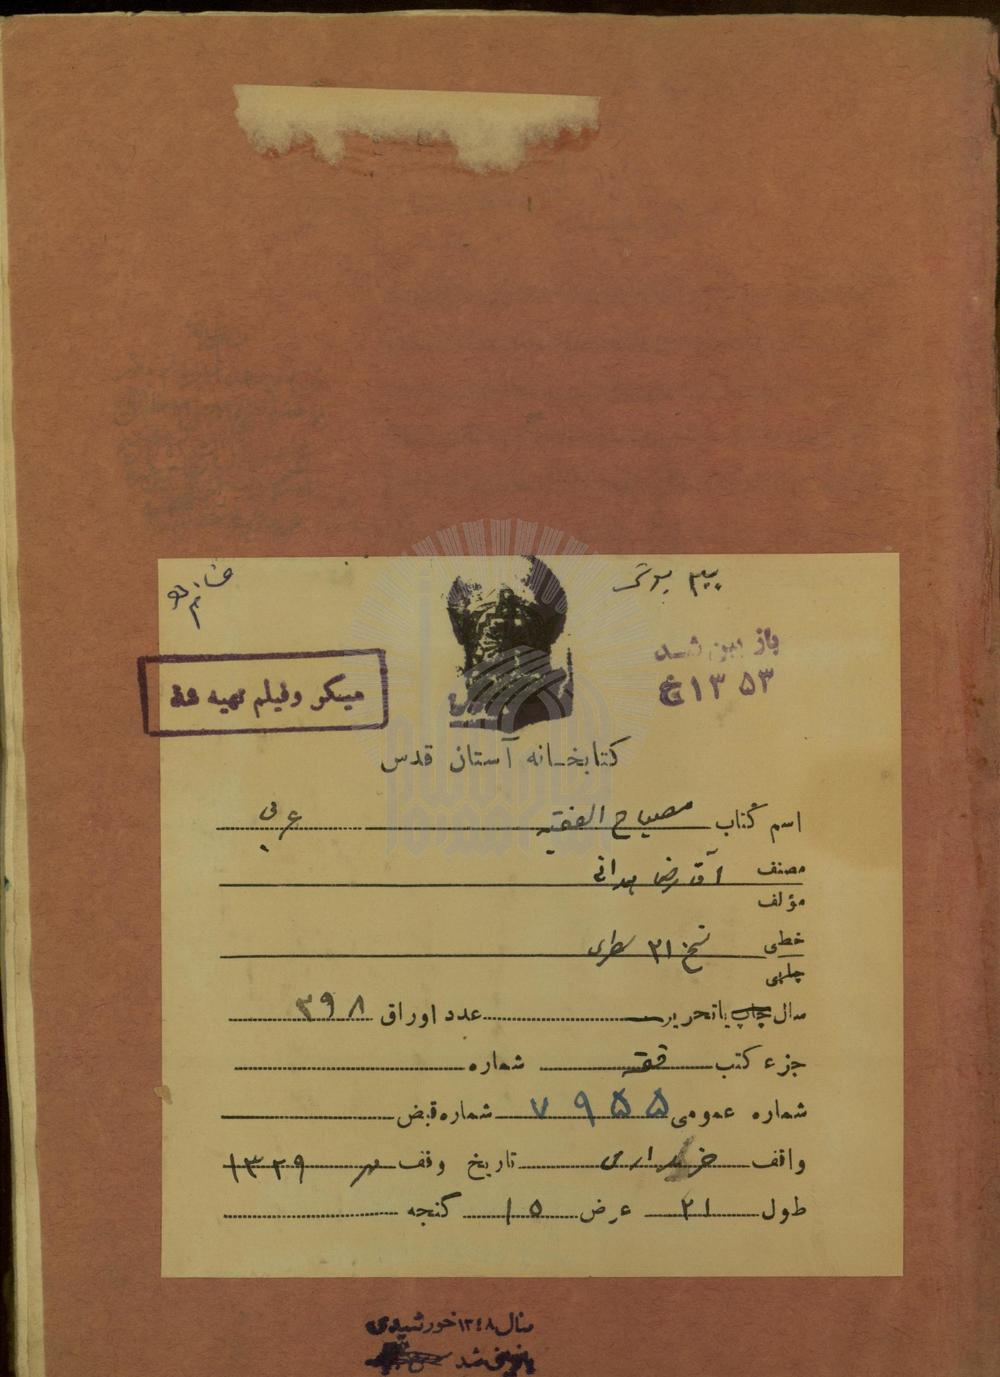 باز بین شد
۱۳۵۳
میکروفیلم تهیه شد
کتابخانه آستان قدس
اسم کتاب مصباح الفقیه عربی
مصنف آقا رضا همدانی
مؤلف
خطی نسخ ۲۱ سطری
چاپی
سال چاپ یا تحریر عدد اوراق ۳۹۸
جزء کتب فقه شماره
شماره عمومی ۷۹۵۵ شماره قبض
واقف خریداری تاریخ وقف مهر ۱۳۲۹
طول ۲۱ عرض ۱۵ گنجه
سال ۱۳۴۸ خورشیدی
بازبینی شد